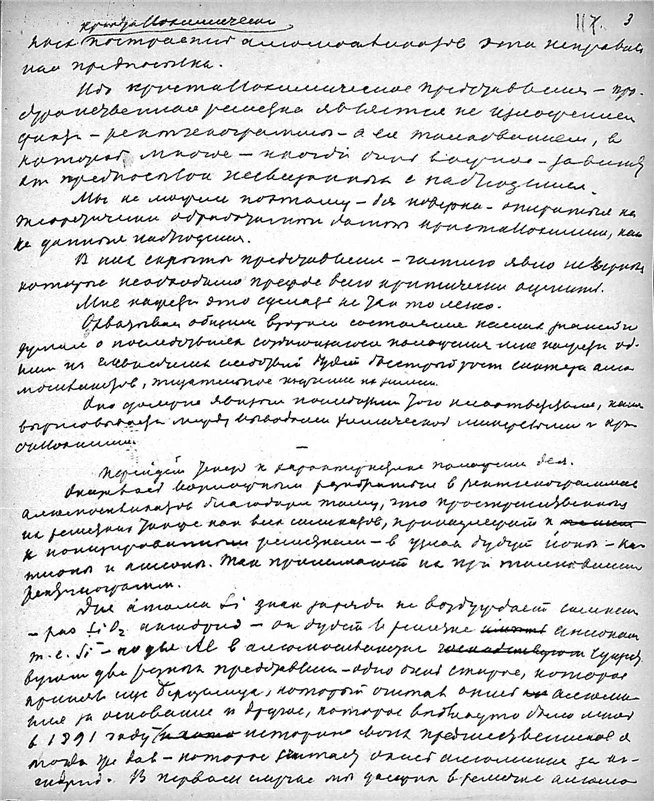 117. 3
кристаллохимически
построение алюмосиликатов эта неправиль
ная предпосылка.
Ибо кристаллохимическое представление – про
странственная решетка является не изложением
факта – рентгенограммы – а ее толкованием, в
котором многое – иногда очень важное – зависит
от предпосылок не связанных с наблюдением.
Мы не можем поэтому – без поверки – опираться на
теоретически обработанные данные кристаллохимии, как
на данные наблюдения.
В них скрыты представления – частию явно неверные
которые необходимо прежде всего критически оценить.
Мне кажется это сделать не так то легко.
Охватывая общим взором состояние наших знаний и
думая о последствиях создавшегося положения мне кажется од
ним из следствий будет быстрый рост синтеза алю
мосиликатов, тщательное изучение
Оно должно явиться последствием того несоответствия, какое
вырисовывается между выводами химической минералогии и кри
сталлохимии.
Перейдем теперь к характеристике положения дела.
Оказывается возможным разобраться в рентгенограммах
алюмосиликатов благодаря тому, что пространственные
их решетки также как всех силикатов, принадлежат к
к ионизированным решеткам – в узлах будут ионы – ка
тионы и анионы. Так принимают их при толковании
рентгенограмм.
Для атома Si знак заряда не возбуждает сомнения
– раз SiO2 ангидрид – он будет в решетке анионом
т.е. Si – но для Al в алюмосиликатах сущест
вуют две разных представления – одно очень старое, которое
принял еще Берцелиус, который считал окись алюми
ния за основание и другое, которое выдвинуто было мною
в 1891 году историю своих предшественников я
тогда же дал – которое считает окись алюминия за ан
гидрид. В первом случае мы должны в решетке алюмо